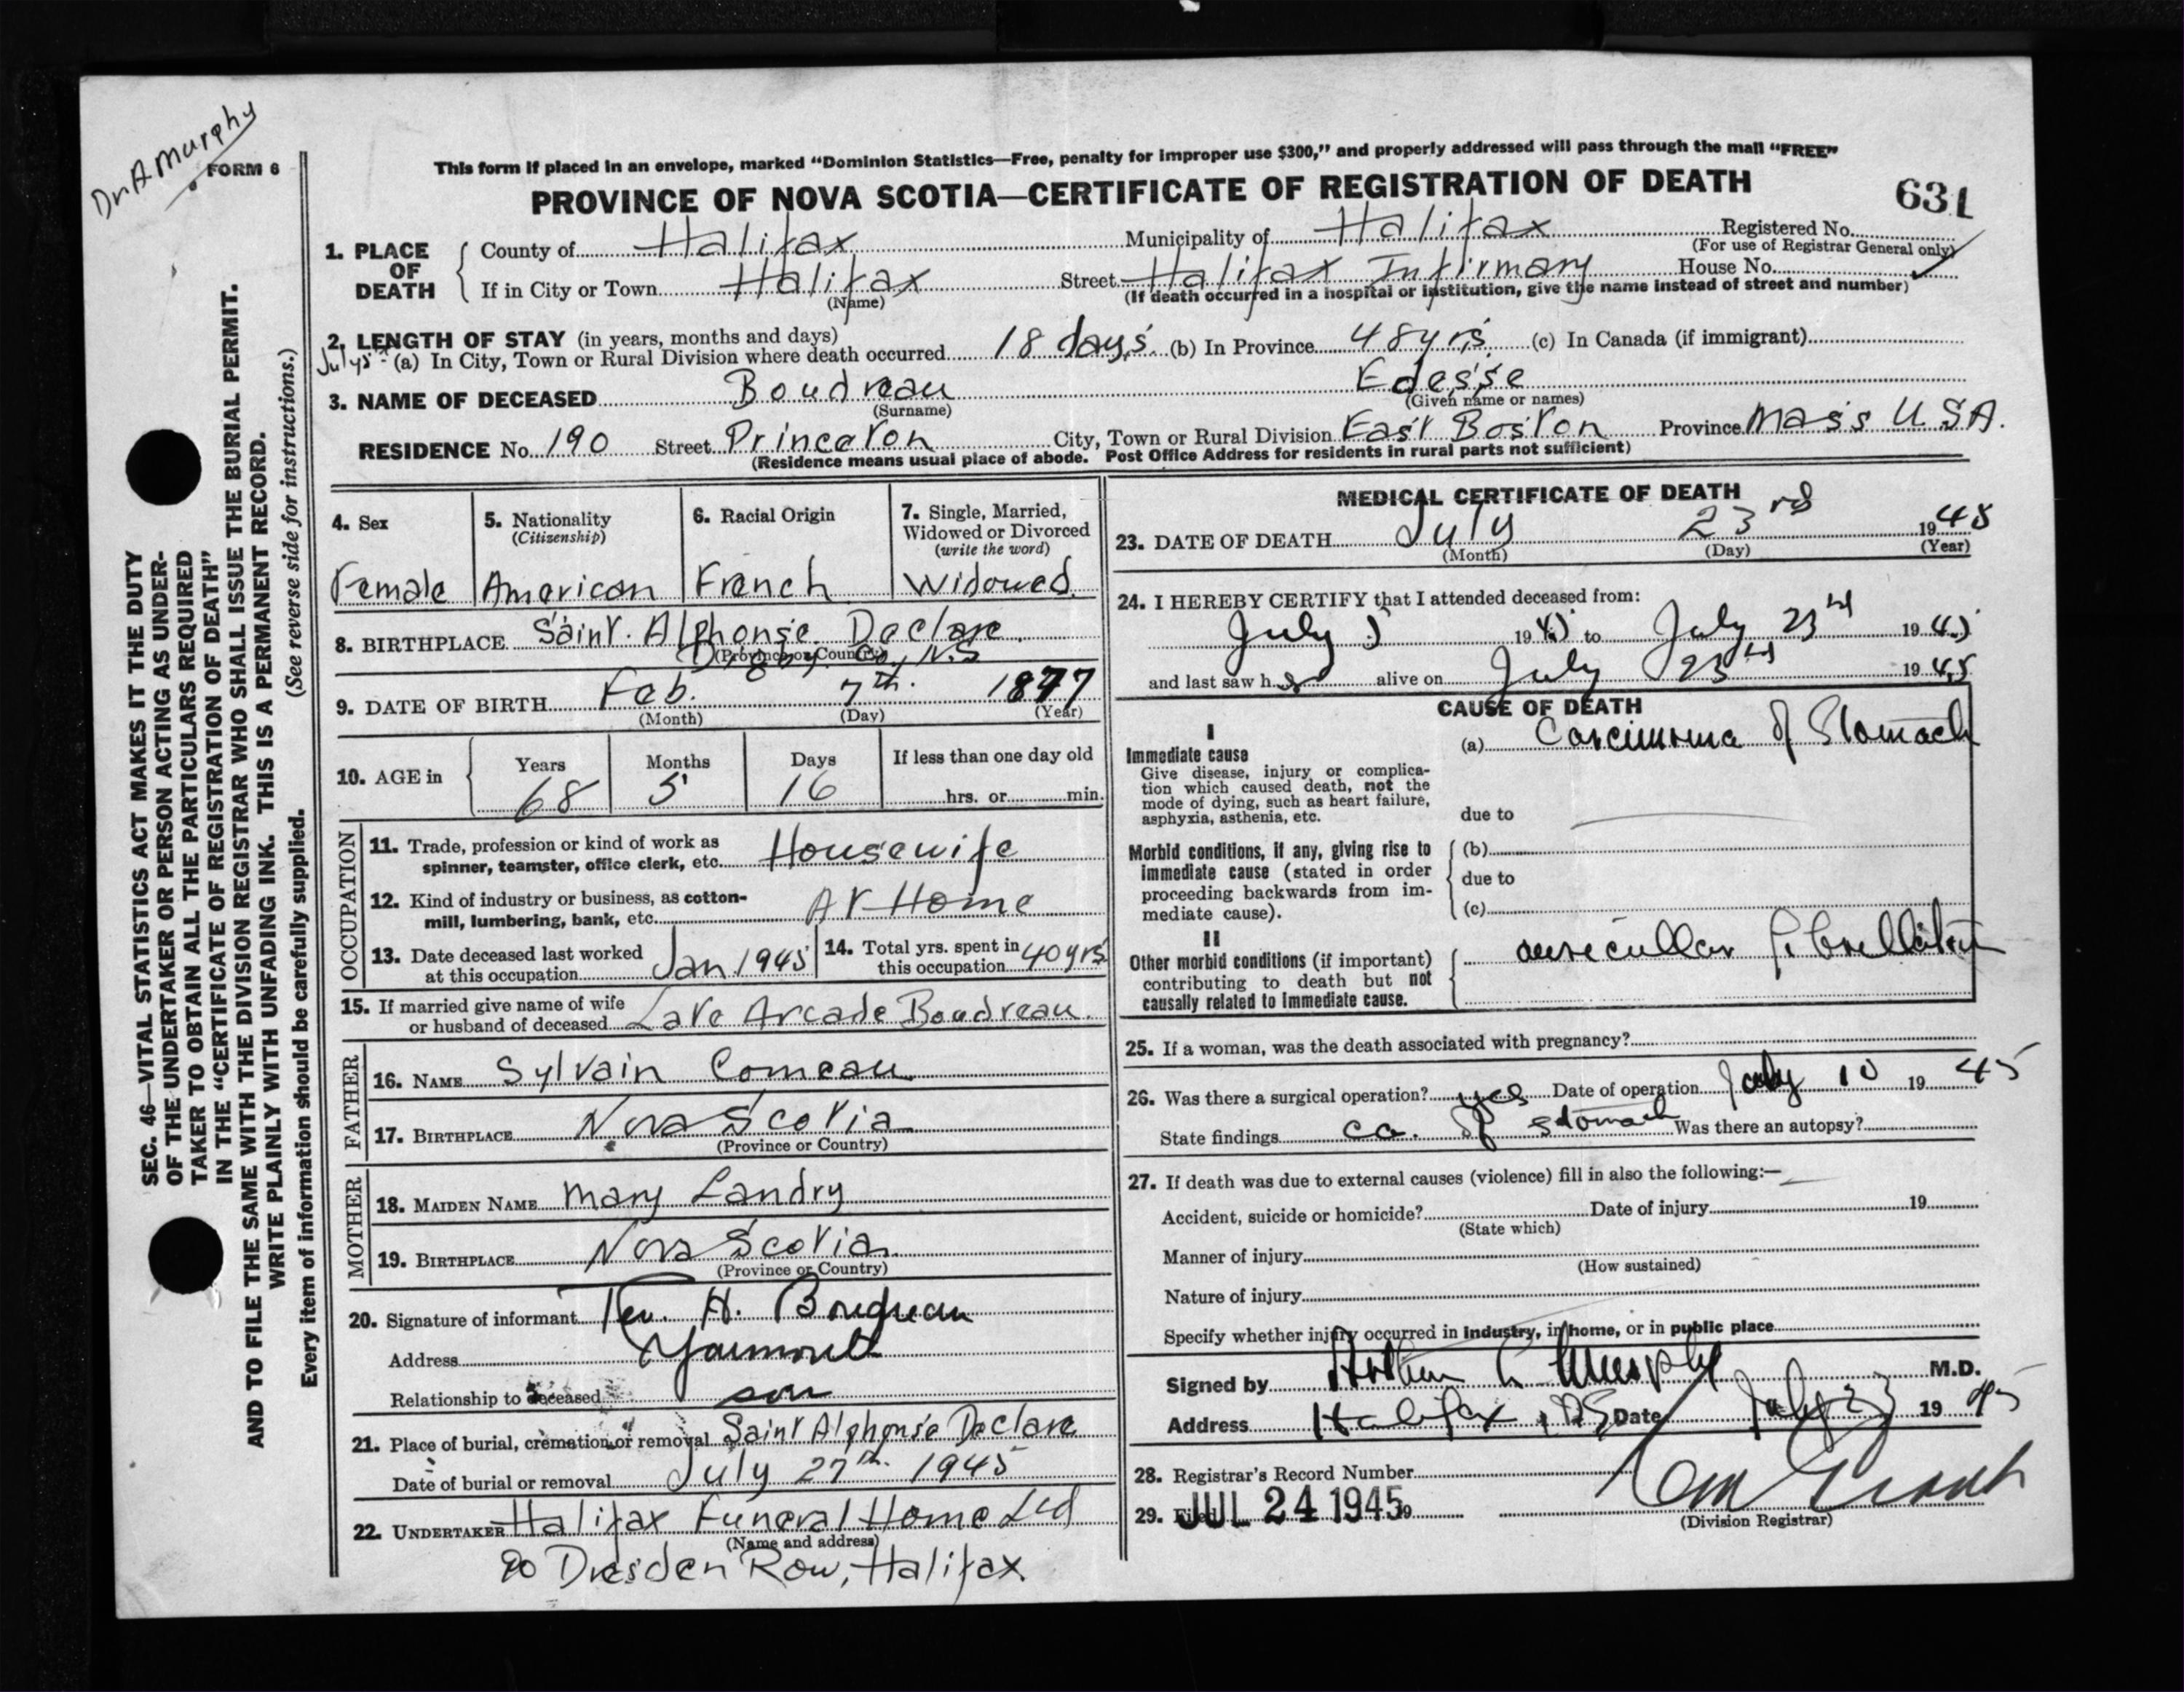 Dr A Murphy
FORM 6
This form if placed in an envelope, marked “Dominion Statistics—Free, penalty for improper use $300,” and properly addressed will pass through the mail “FREE”
PROVINCE OF NOVA SCOTIA—CERTIFICATE OF REGISTRATION OF DEATH
631
1. PLACE OF DEATH
County of Halifax Municipality of Halifax Registered No.
(For use of Registrar General only)
If in City or Town Halifax Street Halifax Infirmary House No.
(Name) (If death occurred in a hospital or institution, give the name instead of street and number)
2. LENGTH OF STAY (in years, months and days)
July 5 - (a) In City, Town or Rural Division where death occurred 18 days. (b) In Province 48 yrs. (c) In Canada (if immigrant)
3. NAME OF DECEASED Boudreau Edesse
(Surname) (Given name or names)
RESIDENCE No. 190 Street Princeton City, Town or Rural Division East Boston Province Mass U.S.A.
(Residence means usual place of abode. Post Office Address for residents in rural parts not sufficient)
4. Sex
Female
5. Nationality
(Citizenship)
American
6. Racial Origin
French
7. Single, Married,
Widowed or Divorced
(write the word)
Widowed
8. BIRTHPLACE Saint. Alphonse. Declare.
(Province or Country)
Digby Co., N.S
9. DATE OF BIRTH Feb. 7th. 1877
(Month) (Day) (Year)
10. AGE in
Years Months Days If less than one day old
68 5 16 hrs. or min.
OCCUPATION
11. Trade, profession or kind of work as
spinner, teamster, office clerk, etc. Housewife
12. Kind of industry or business, as cotton-
mill, lumbering, bank, etc. At Home
13. Date deceased last worked
at this occupation Jan 1945
14. Total yrs. spent in
this occupation 40 yrs
15. If married give name of wife
or husband of deceased Late Arcade Boudreau.
FATHER
16. NAME Sylvain Comeau
17. BIRTHPLACE Nova Scotia
(Province or Country)
MOTHER
18. MAIDEN NAME Mary Landry
19. BIRTHPLACE Nova Scotia
(Province or Country)
20. Signature of informant Rev. H. Boudreau
Address Yarmouth
Relationship to deceased son
21. Place of burial, cremation or removal Saint Alphonse Declare
Date of burial or removal July 27th. 1945
22. UNDERTAKER Halifax Funeral Home Ltd
(Name and address)
90 Dresden Row, Halifax
MEDICAL CERTIFICATE OF DEATH
23. DATE OF DEATH July 23rd 1945
(Month) (Day) (Year)
24. I HEREBY CERTIFY that I attended deceased from:
July 5 1945 to July 23rd 1945
and last saw her alive on July 23rd 1945
CAUSE OF DEATH
I
Immediate cause
Give disease, injury or complica-
tion which caused death, not the
mode of dying, such as heart failure,
asphyxia, asthenia, etc.
(a) Carcinoma of Stomach
due to
Morbid conditions, if any, giving rise to
immediate cause (stated in order
proceeding backwards from im-
mediate cause).
(b)
due to
(c)
II
Other morbid conditions (if important)
contributing to death but not
causally related to immediate cause.
auricullar fibrillation
25. If a woman, was the death associated with pregnancy?
26. Was there a surgical operation? yes Date of operation July 10 1945
State findings ca. of stomach Was there an autopsy?
27. If death was due to external causes (violence) fill in also the following:—
Accident, suicide or homicide? Date of injury 19
(State which)
Manner of injury
(How sustained)
Nature of injury
Specify whether injury occurred in industry, in home, or in public place
Signed by Arthur Murphy M.D.
Address Halifax, NS Date July 23 1945
28. Registrar's Record Number
29. Filed JUL 24 1945 19
(Division Registrar)
SEC. 46—VITAL STATISTICS ACT MAKES IT THE DUTY
OF THE UNDERTAKER OR PERSON ACTING AS UNDER-
TAKER TO OBTAIN ALL THE PARTICULARS REQUIRED
IN THE “CERTIFICATE OF REGISTRATION OF DEATH”
AND TO FILE THE SAME WITH THE DIVISION REGISTRAR WHO SHALL ISSUE THE BURIAL PERMIT.
WRITE PLAINLY WITH UNFADING INK. THIS IS A PERMANENT RECORD.
Every item of information should be carefully supplied. (See reverse side for instructions.)